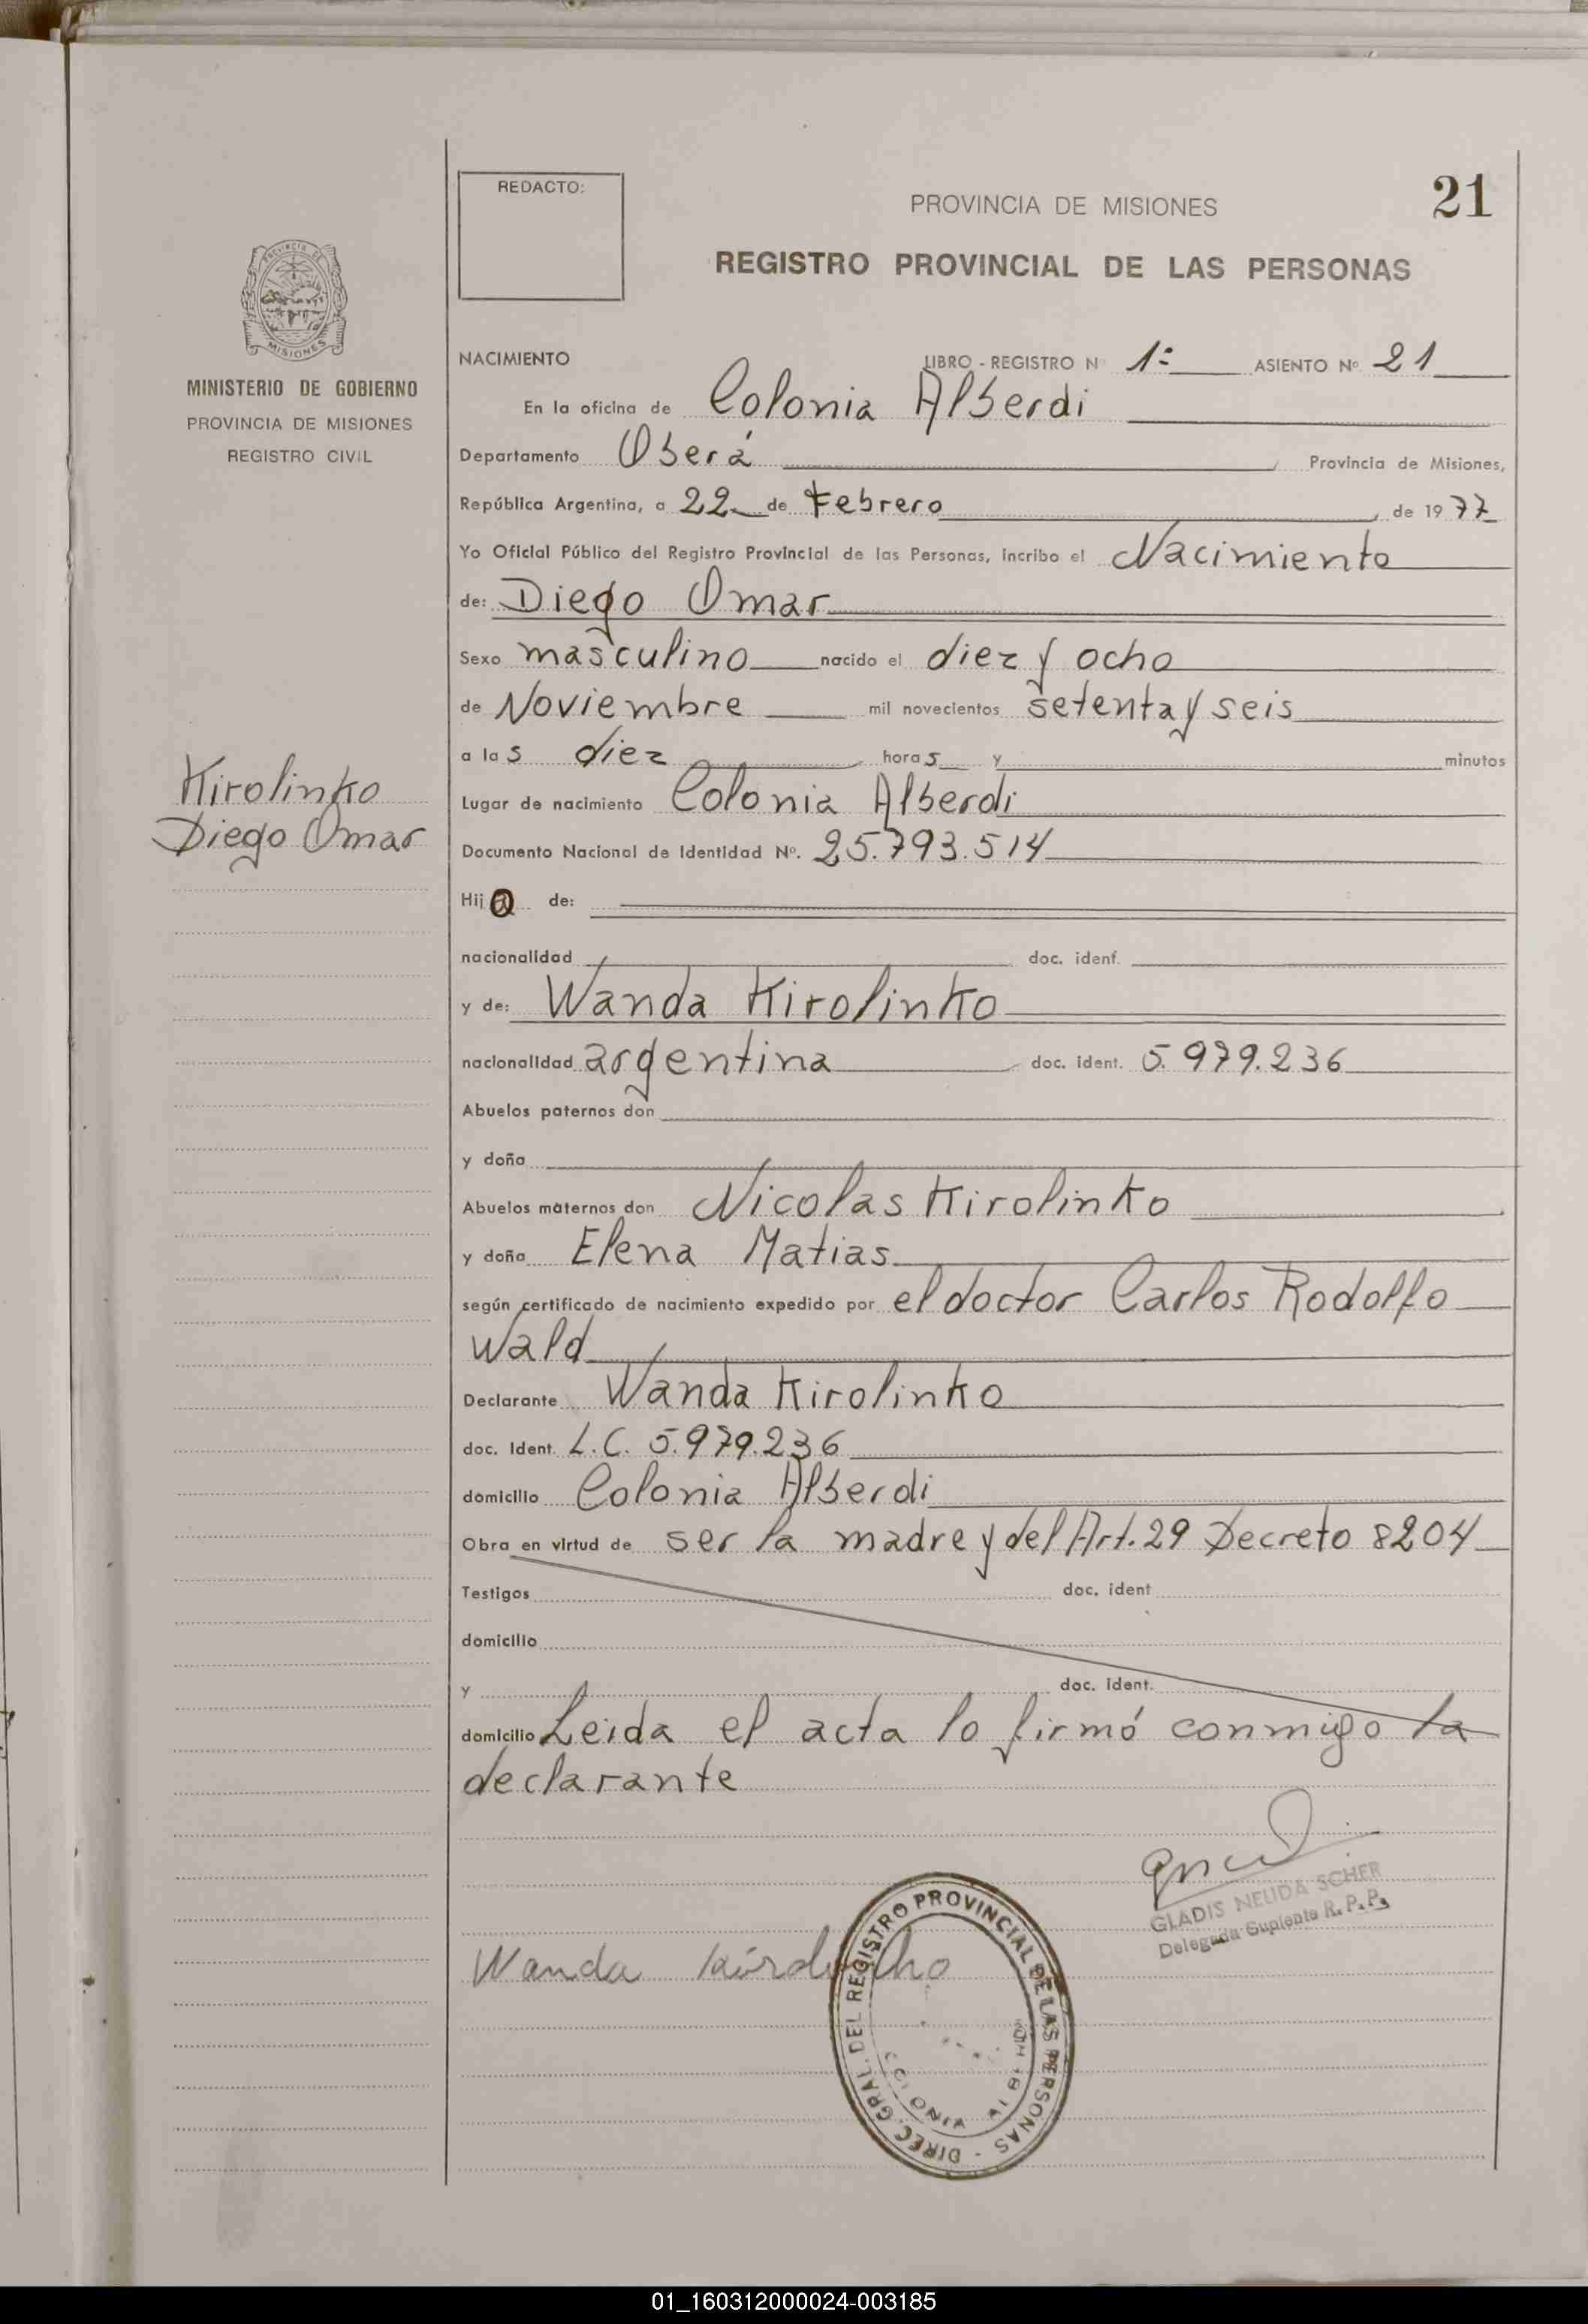 REDACTO:
PROVINCIA DE MISIONES
21
REGISTRO PROVINCIAL DE LAS PERSONAS
PROVINCIA DE
MISIONES
MINISTERIO DE GOBIERNO
PROVINCIA DE MISIONES
REGISTRO CIVIL
Kirolinko
Diego Omar
NACIMIENTO LIBRO - REGISTRO Nº 1º ASIENTO Nº 21
En la oficina de Colonia Alberdi
Departamento Oberá Provincia de Misiones,
República Argentina, a 22 de Febrero de 1977
Yo Oficial Público del Registro Provincial de las Personas, incribo el Nacimiento
de: Diego Omar
Sexo masculino nacido el diez y ocho
de Noviembre mil novecientos setenta y seis
a las diez horas y minutos
Lugar de nacimiento Colonia Alberdi
Documento Nacional de Identidad Nº. 25.793.514
Hijo de:
nacionalidad doc. ident.
y de: Wanda Kirolinko
nacionalidad argentina doc. ident. 5.979.236
Abuelos paternos don
y doña
Abuelos maternos don Nicolas Kirolinko
y doña Elena Matias
según certificado de nacimiento expedido por el doctor Carlos Rodolfo
Wald
Declarante Wanda Kirolinko
doc. Ident. L.C. 5.979.236
domicilio Colonia Alberdi
Obra en virtud de ser la madre y del Art. 29 Decreto 8204
Testigos doc. ident
domicilio
y doc. ident.
domicilio Leida el acta lo firmó conmigo la
declarante
GLADIS NELIDA SCHER
Delegada Suplente R.P.P.
Wanda
DIREC. GRAL. DEL REGISTRO PROVINCIAL DE LAS PERSONAS -
COLONIA
01_160312000024-003185